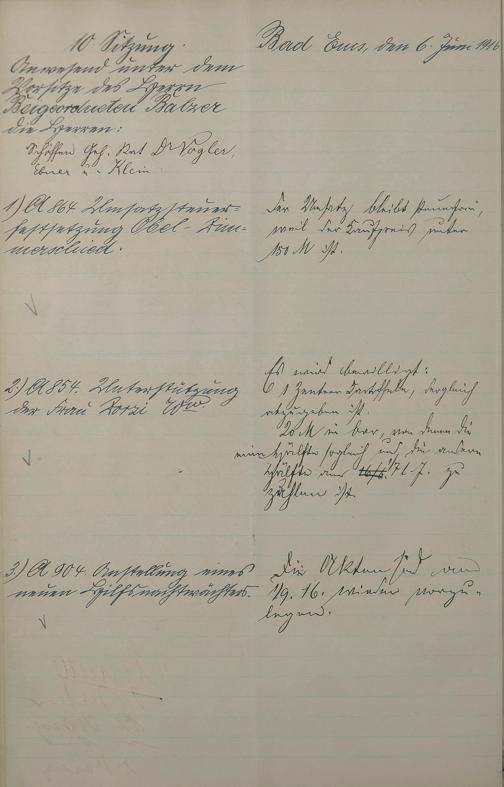 10 Sitzung.
Bad Ems, den 6. Juni 1916
Anwesend unter dem
Vorsitze des Herrn
Beigeordneten Balzer
die Herren:
Schöffen Geh. Rat Dr Vogler,
Ebner u. Klein.
1) A 864 Umsatzsteuer=
festsetzung Obel- Zim=
merschied.
Der Umsatz bleibt steuerfrei,
weil der Kaufpreis unter
150 M ist.
2) A 854. Unterstützung
der Frau Ww.
Es wird bewilligt:
1 Zentner Kartoffeln,
abzugeben ist.
20 M in bar, von denen die
eine Hälfte sogleich und die andere
Hälfte am 1/7 l. J. zu
zahlen ist.
3) A 904. Anstellung eines
neuen Hilfsnachtwächters.
Die Akten sind am
1/9. 16. wieder vorzu=
legen.